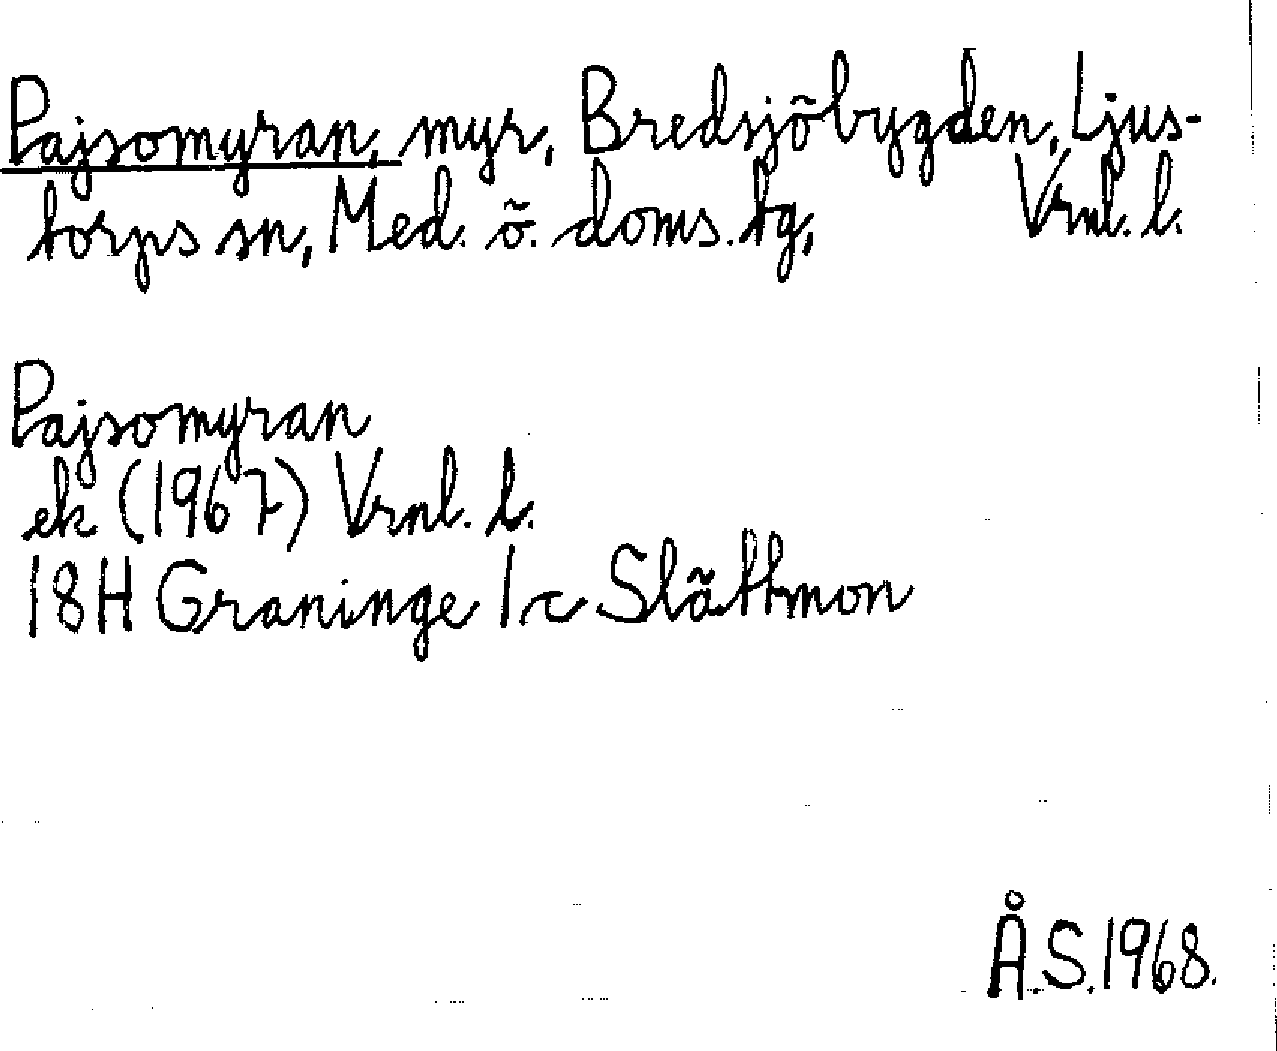 Pajsomyran, myr, Bredsjöbygden, Ljus-
torps sn, Med. ö. doms. tg, Vrnl. l.
Pajsomyran
ek (1967) Vrnl. l.
18H Graninge 1c Slättmon
Å.S. 1968.